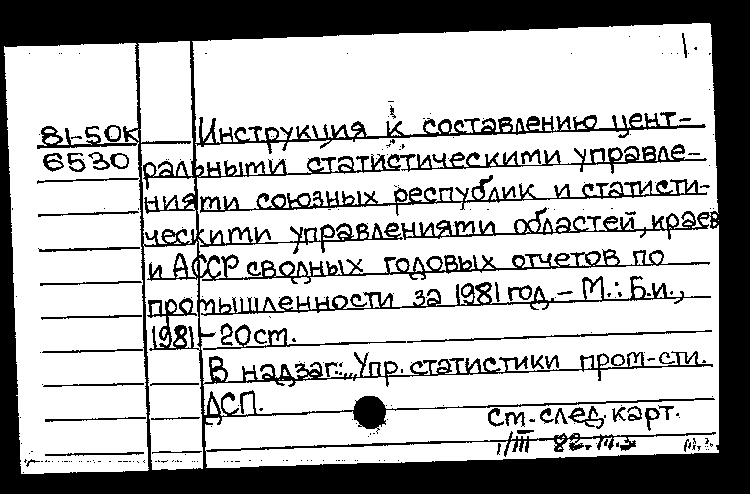 1.
81-50к Инструкция к составлению цент-
6530 ральными статистическими управле-
ниями союзных республик и статисти-
ческими управлениями областей, краев
и АССР сводных годовых отчетов по
промышленности за 1981 год. – М.: Б.и.,
1981 – 20 ст.
В надзаг.: „Упр. статистики пром-сти.
ДСП.
см. след. карт.
1/III 82. т.з